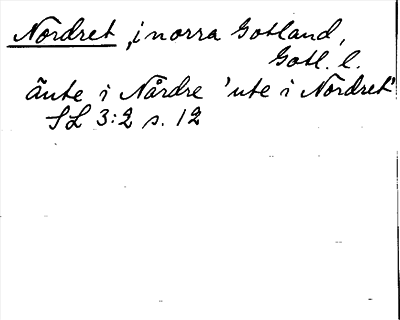 Nordret, i norra Gotland,
Gotl. l.
ãute i Nårdre 'ute i Nordret'
SL 3:2 s. 12